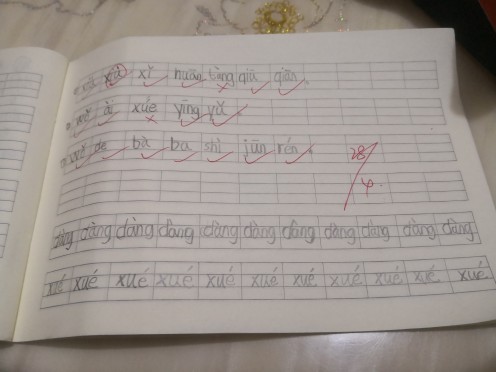 xǐ huān tàng qiū qiān.
wǒ ài xué yīng yǔ.
wǒ de bà ba shì jūn rén.
28/4.
dàng dàng dàng dàng dàng dàng dàng dàng dàng dàng
xué xué xué xué xué xué xué xué xué xué xué